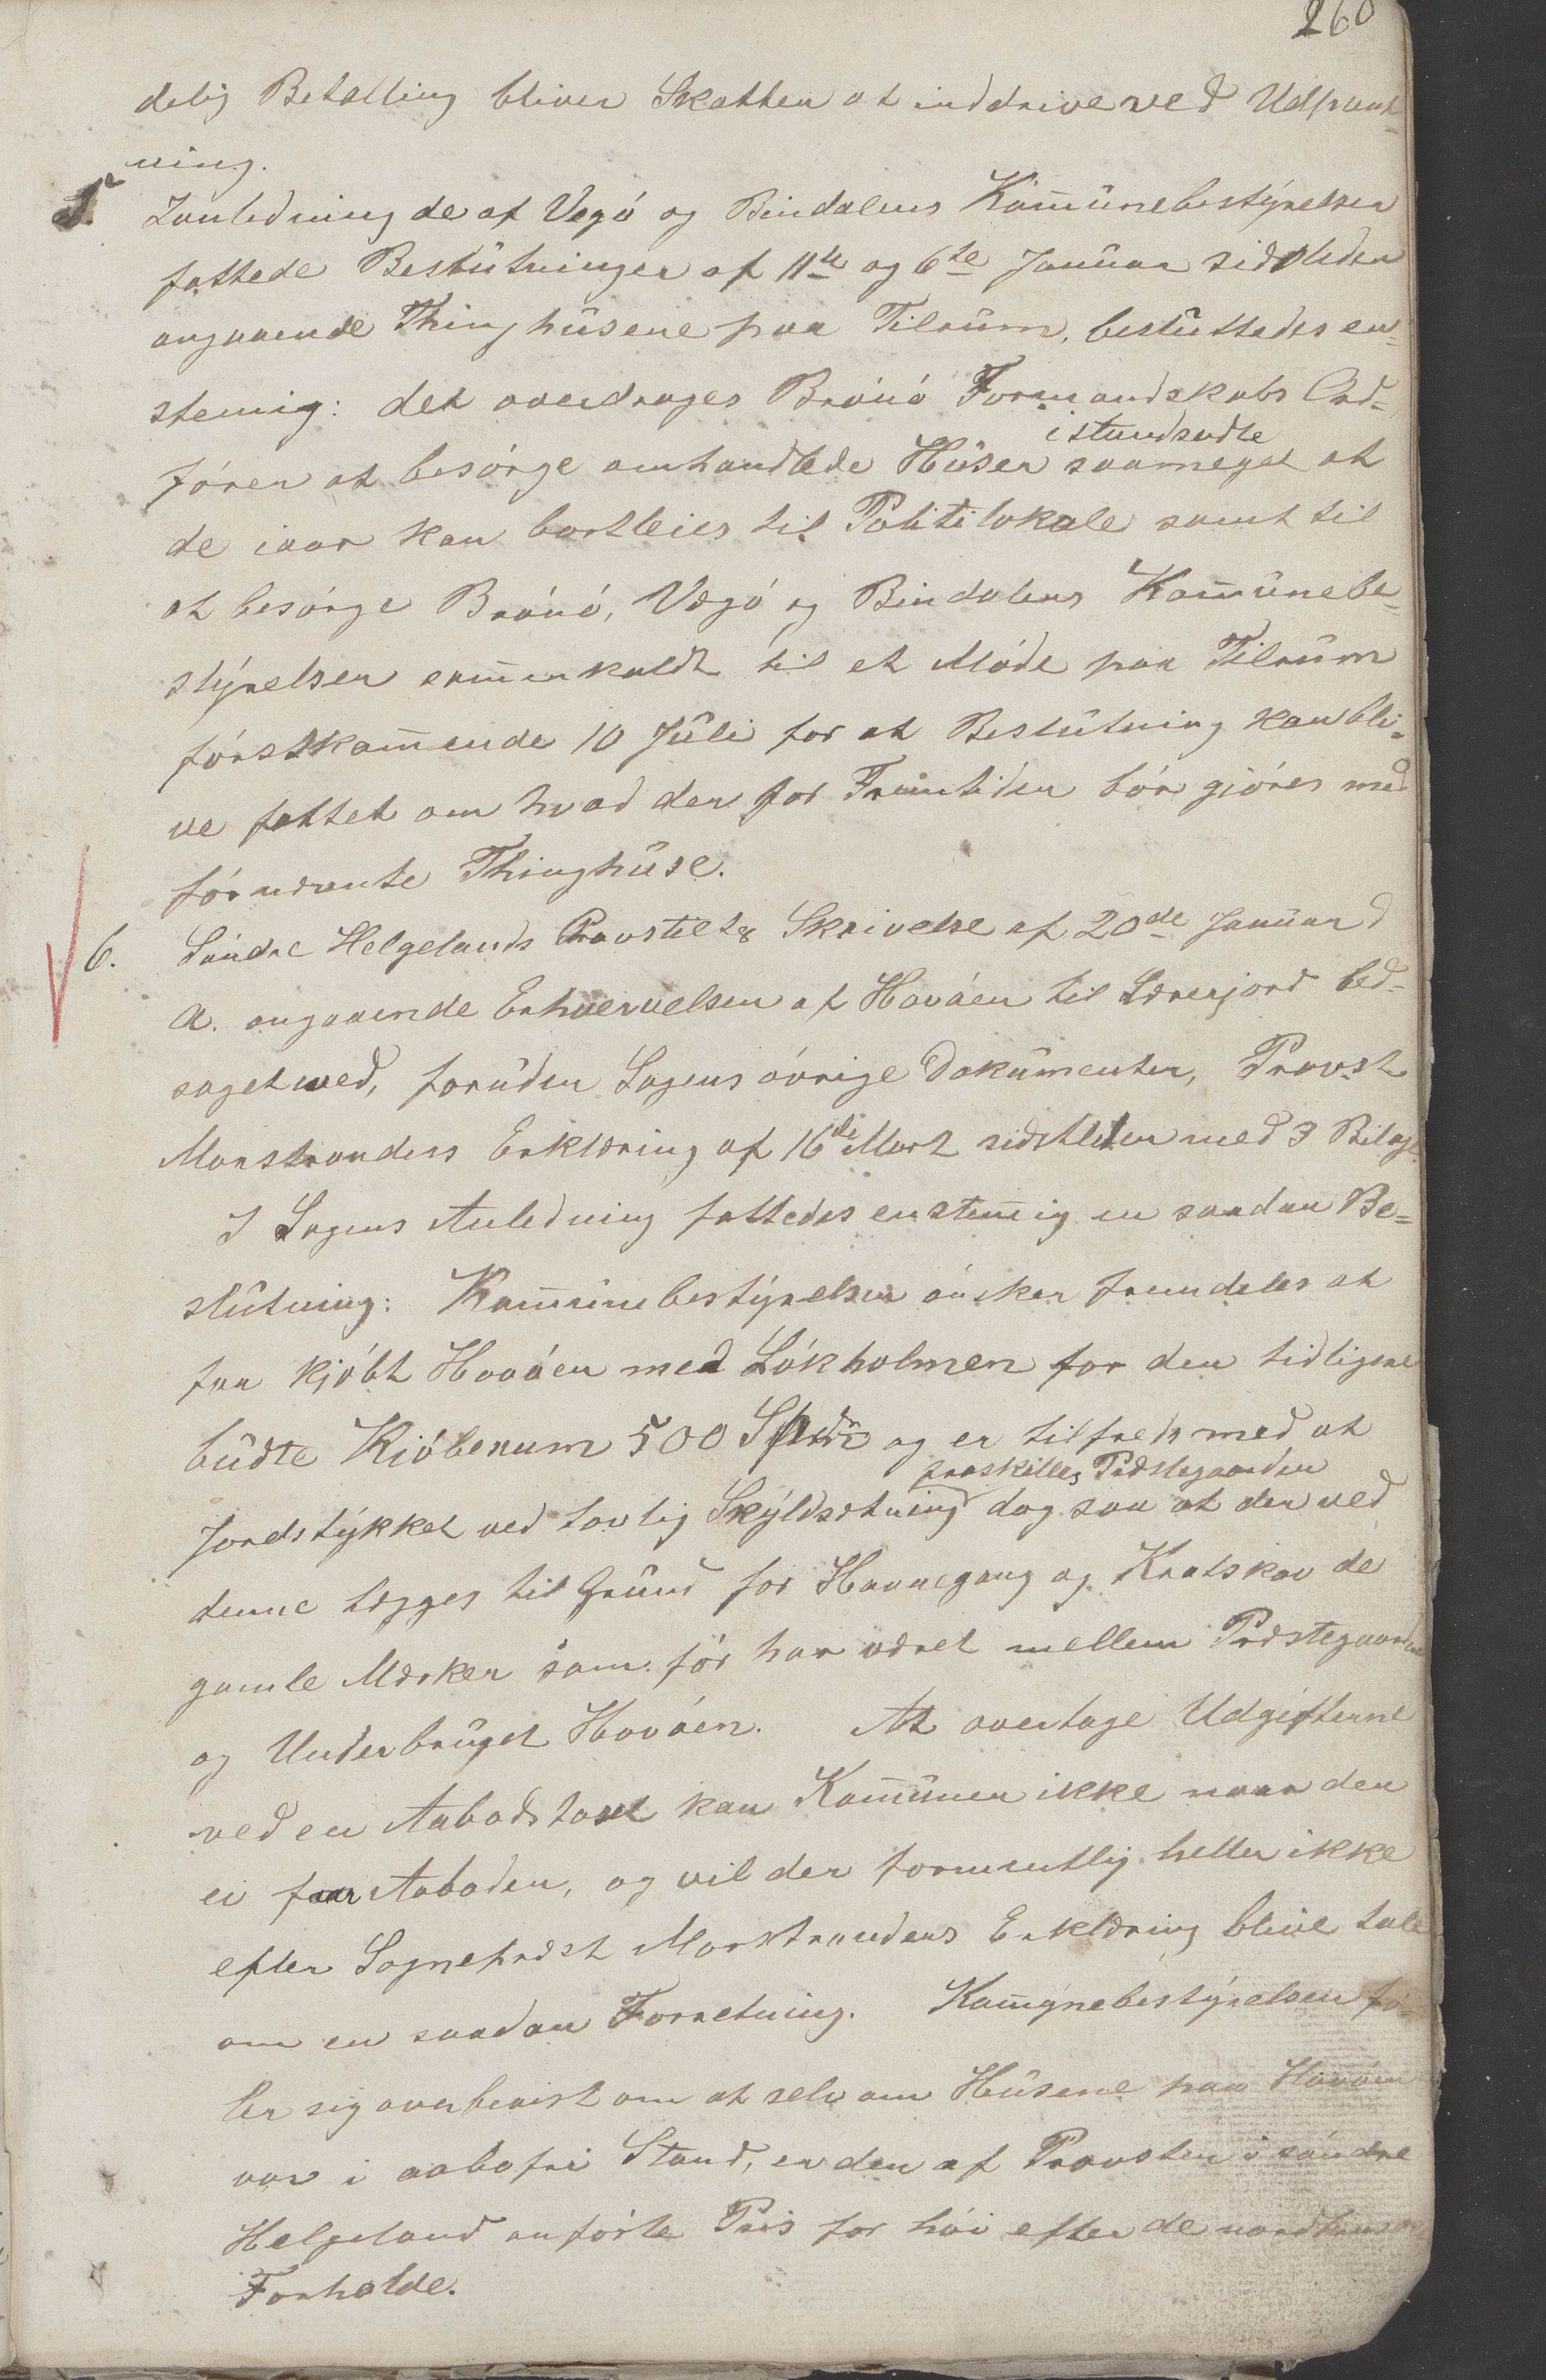 260
delig Betalling bliver Skatten at inddrive ved Udpant-
ning.
5. Ianledning de af Vegó og Bindalens Kom̄unebestyrelser
fattede Beslutninger af 11te og 6te Januar sidstleden
angaaende Thinghusene paa Tilrum, besluttedes en-
stemig: det overdrages Brónó Formandskabs Ord-
istandsadte
fórer at besórge omhandlede Huser saameget at
de iaar kan bortleies til Politilokale samt til
at besórge Brónó, Vegó og Bindalens Kom̄unebe-
styrelser sam̄enkaldt til et Móde paa Tilrum
fórstkom̄ende 10 Juli for at Beslutning kan bli-
ve fattet om hvad der for Fremtiden bór gjóres med
fórnævnte Thinghuse.
6. Sóndre Helgelands Provstiets Skrivelse af 20de Januar d
A. angaaende Erhvervelsen af Hovóen til Lærerjord led-
saget med, foruden Sagens óvrige Dokumenter, Provst
Monstranders Erklæring af 16de Mart sidstleden med 3 Bilage.
I Sagens Anledning fattedes enstem̄ig en saadan Be-
slutning: Kom̄unebestyrelsen ónsker fremdeles at
faa kjóbt Hovóen med Lókholmen for den tidligere
budte Kjóbesum 500 Spd og er tilfreds med at
fraskilles Præstegaarden
Jordstykket ved lovlig Skyldsætning dog saa at der ved
denne lægges til Grund for Havnegang og Kratskov de
gamle Mærker som fór har været mellem Præstegaarden
og Underbruget Hovóen. At overtage Udgifterne
ved en Aabodstaxt kan Kom̄unen ikke naar den
ei faar Aaboden, og vil der formentlig heller ikke
efter Sognepræst Monstranders Erklæring blive tale
om en saadan Forretning. Kom̄unebestyrelsen fó-
ler sig overbevist om at selv om Husene paa Hovóen
var i aabofri Stand, er den af Provsten i sóndre
Helgeland anfórte Pris for hói efter de nordlandske
Forholde.